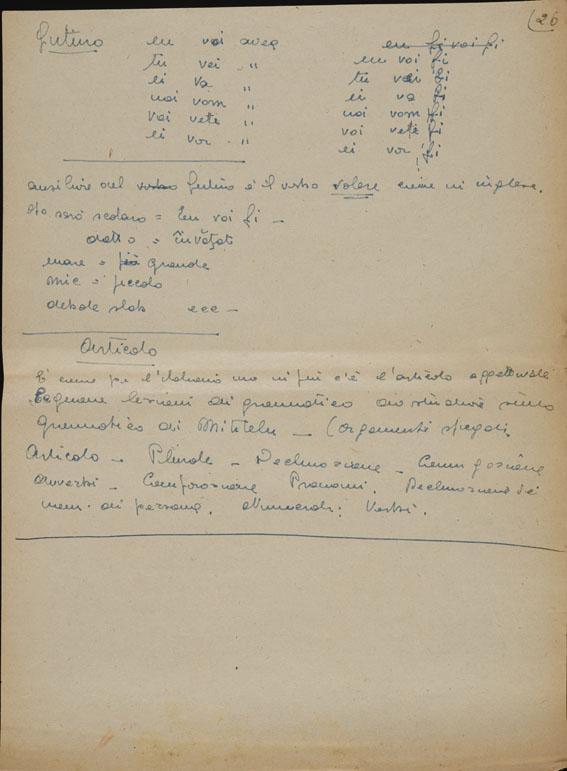 (26
Futuro eu voi avea eu fi voi fi
tu vei " eu voi fi
ei va " tu vei fi
noi vom " ei va fi
voi veti " noi vom fi
ei vor " voi veti fi
ei vor fi
ausiliare del verbo futuro è il verbo volere come in inglese.
Io sarò scolaro = Eu voi fi –
dotto = învăţat
mare = più grande
mic = piccolo
debole slab ecc –
Articolo
È come per l'italiano ma in più c'è l'articolo aggettivale
Seguono lezioni di grammatica sulla
Grammatica di Mititelu – (argomenti spiegati,
Articolo – Plurale – Declinazione – Coniugazione
avverbi – Comparazione Pronomi. Declinazione dei
nomi di persona. Numerali: Verbi.